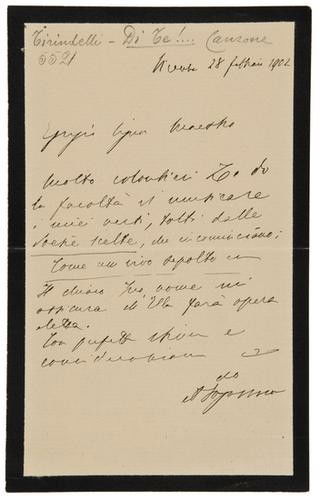 Tirindelli - Di Te!... Canzone
5521
28 febbraio 1902
Egregio Signor Maestro
Molto volentieri Le do
la facoltà di musicare
i miei versi, tolti dalle
Poesie scelte, che incominciano:
Come un vivo sepolto
Il chiaro Suo nome mi
assicura ch'Ella farà opera
eletta.
Con perfetta stima e
considerazione